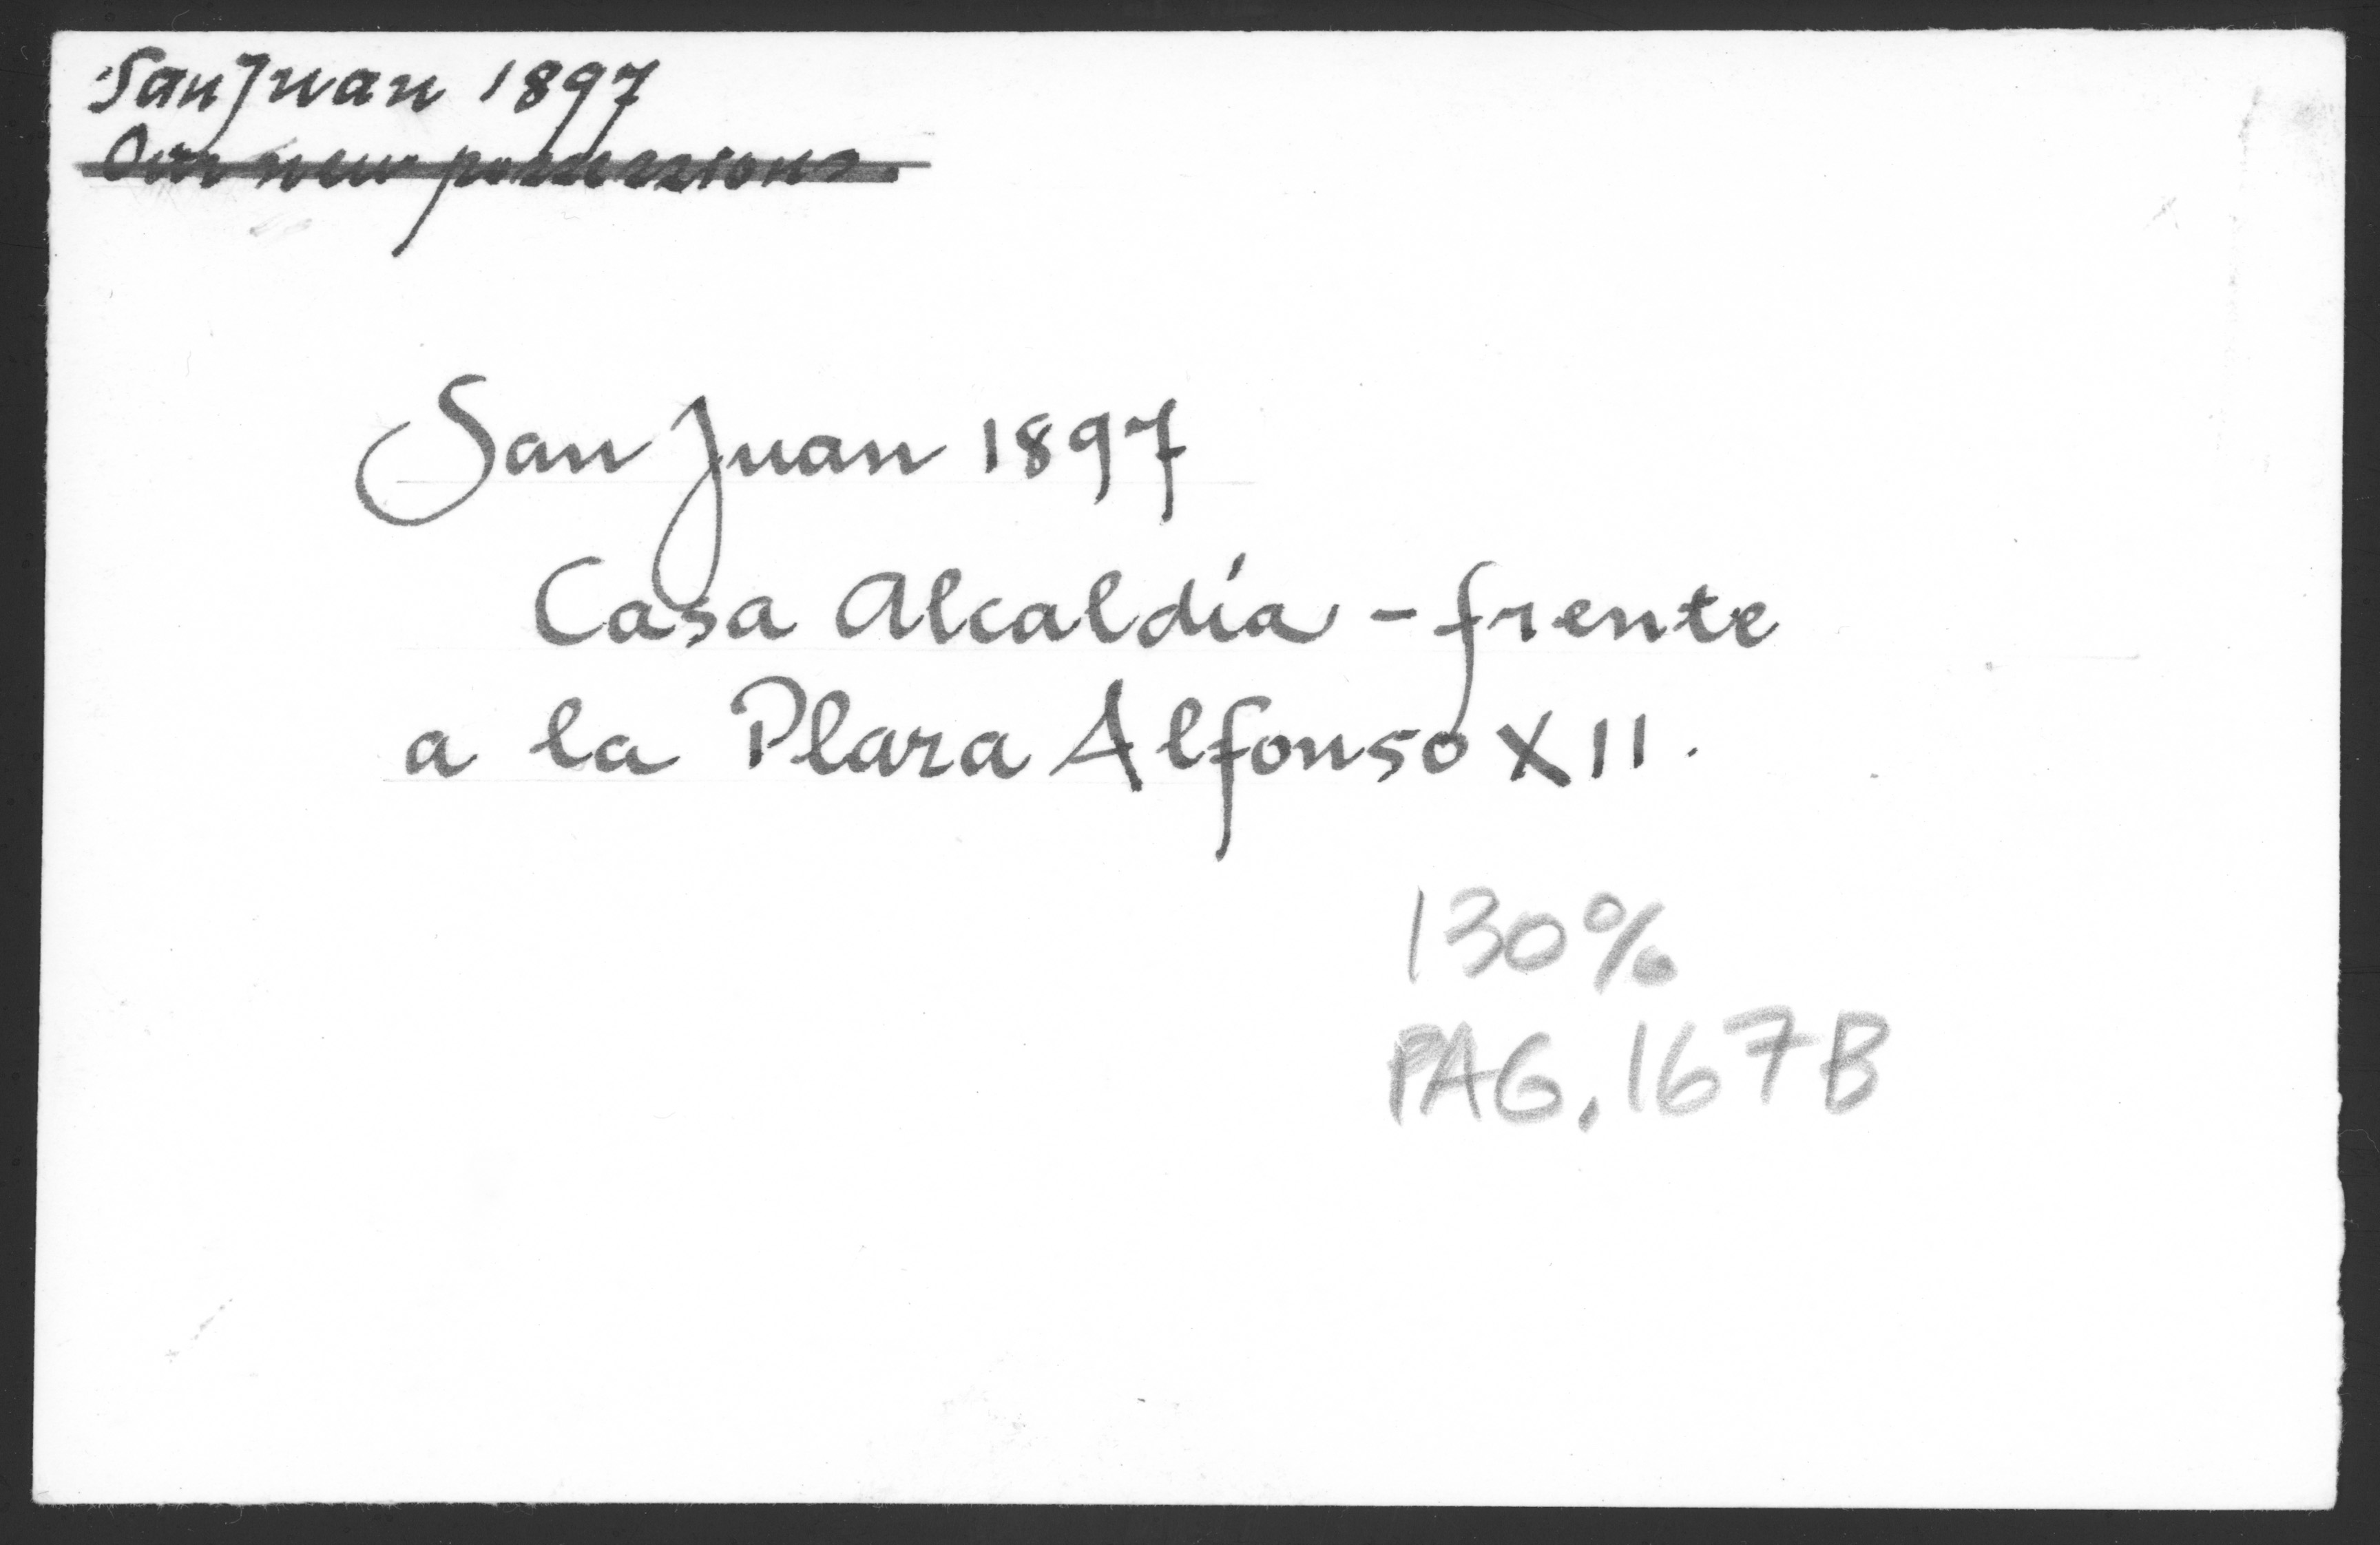 San Juan 1897
Our new possessions.
San Juan 1897
Casa Alcaldía - frente
a la Plaza Alfonso XII.
130%
PAG. 167B